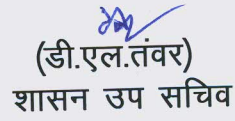 (डी.एल.तंवर)
शासन उप सचिव